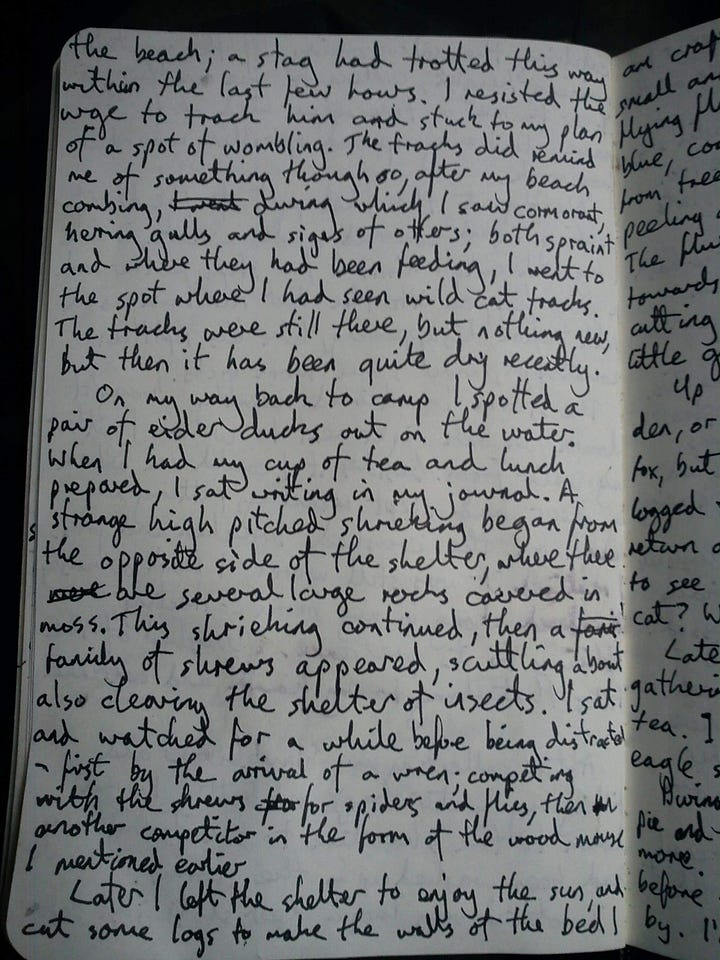 the beach; a stag had trotted this way
within the last few hours. I resisted the
urge to track him and stuck to my plan
of a spot of wombling. The tracks did remind
me of something though so, after my beach
combing, during which I saw cormorant,
herring gulls and signs of otters; both spraint
and where they had been feeding, I went to
the spot where I had seen wild cat tracks.
The tracks were still there, but nothing new,
but then it has been quite dry recently.
On my way back to camp I spotted a
pair of eider ducks out on the water.
When I had my cup of tea and lunch
prepared, I sat writing in my journal. A
strange high pitched shrieking began from
the opposite side of the shelter, where there
are several large rocks covered in
moss. This shrieking continued, then a
family of shrews appeared, scuttling about
also clearing the shelter of insects. I sat
and watched for a while before being distracted
- first by the arrival of a wren; competing
with the shrews for spiders and flies, then
another competitor in the form of the wood mouse
I mentioned earlier
Later I left the shelter to enjoy the sun, and
cut some logs to make the walls of the bed I
an
small
flying
blue,
from
peeling
The
towards
cutting
little
Up
den, or
fox, but
logged
return
to see
cat?
Late
tea. I
eagle
pie and
more.
before
by.